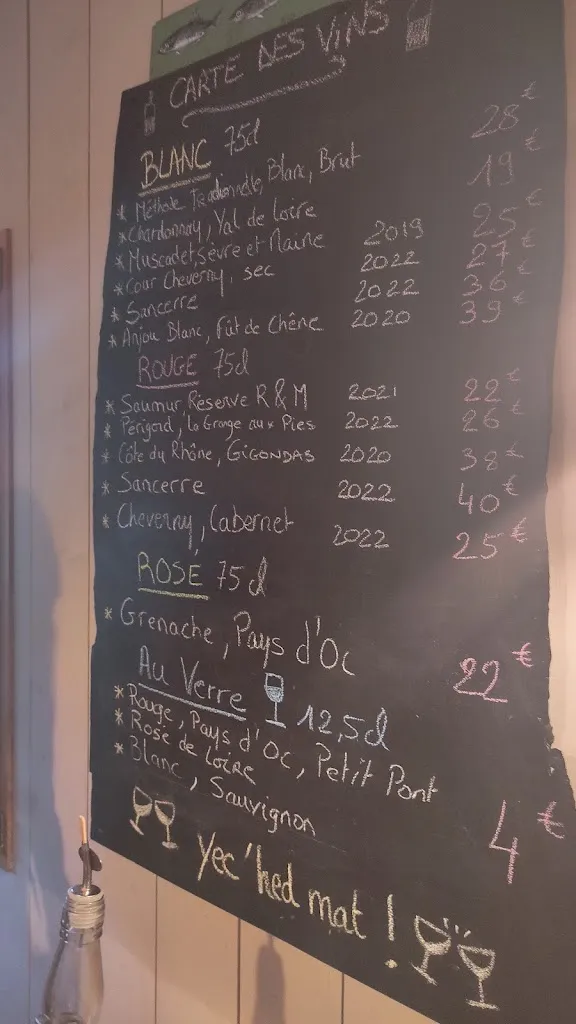 CARTE DES VINS
BLANC 75cl
* Méthode Traditionnelle, Blanc, Brut 28€
* Chardonnay, Val de Loire 19€
* Muscadet, Sèvre et Maine 2019 25€
* Cour Cheverny, sec 2022 27€
* Sancerre 2022 36€
* Anjou Blanc, Fût de Chêne 2020 39€
ROUGE 75cl
* Saumur, Réserve R & M 2021 22€
* Périgord, La Grange aux Pies 2022 26€
* Côte du Rhône, GIGONDAS 2020 38€
* Sancerre 2022 40€
* Cheverny, Cabernet 2022 25€
ROSÉ 75cl
* Grenache, Pays d'Oc 22€
Au Verre 12,5cl
* Rouge, Pays d'Oc, Petit Pont
* Rosé de Loire
* Blanc, Sauvignon 4€
Yec'hed mat !